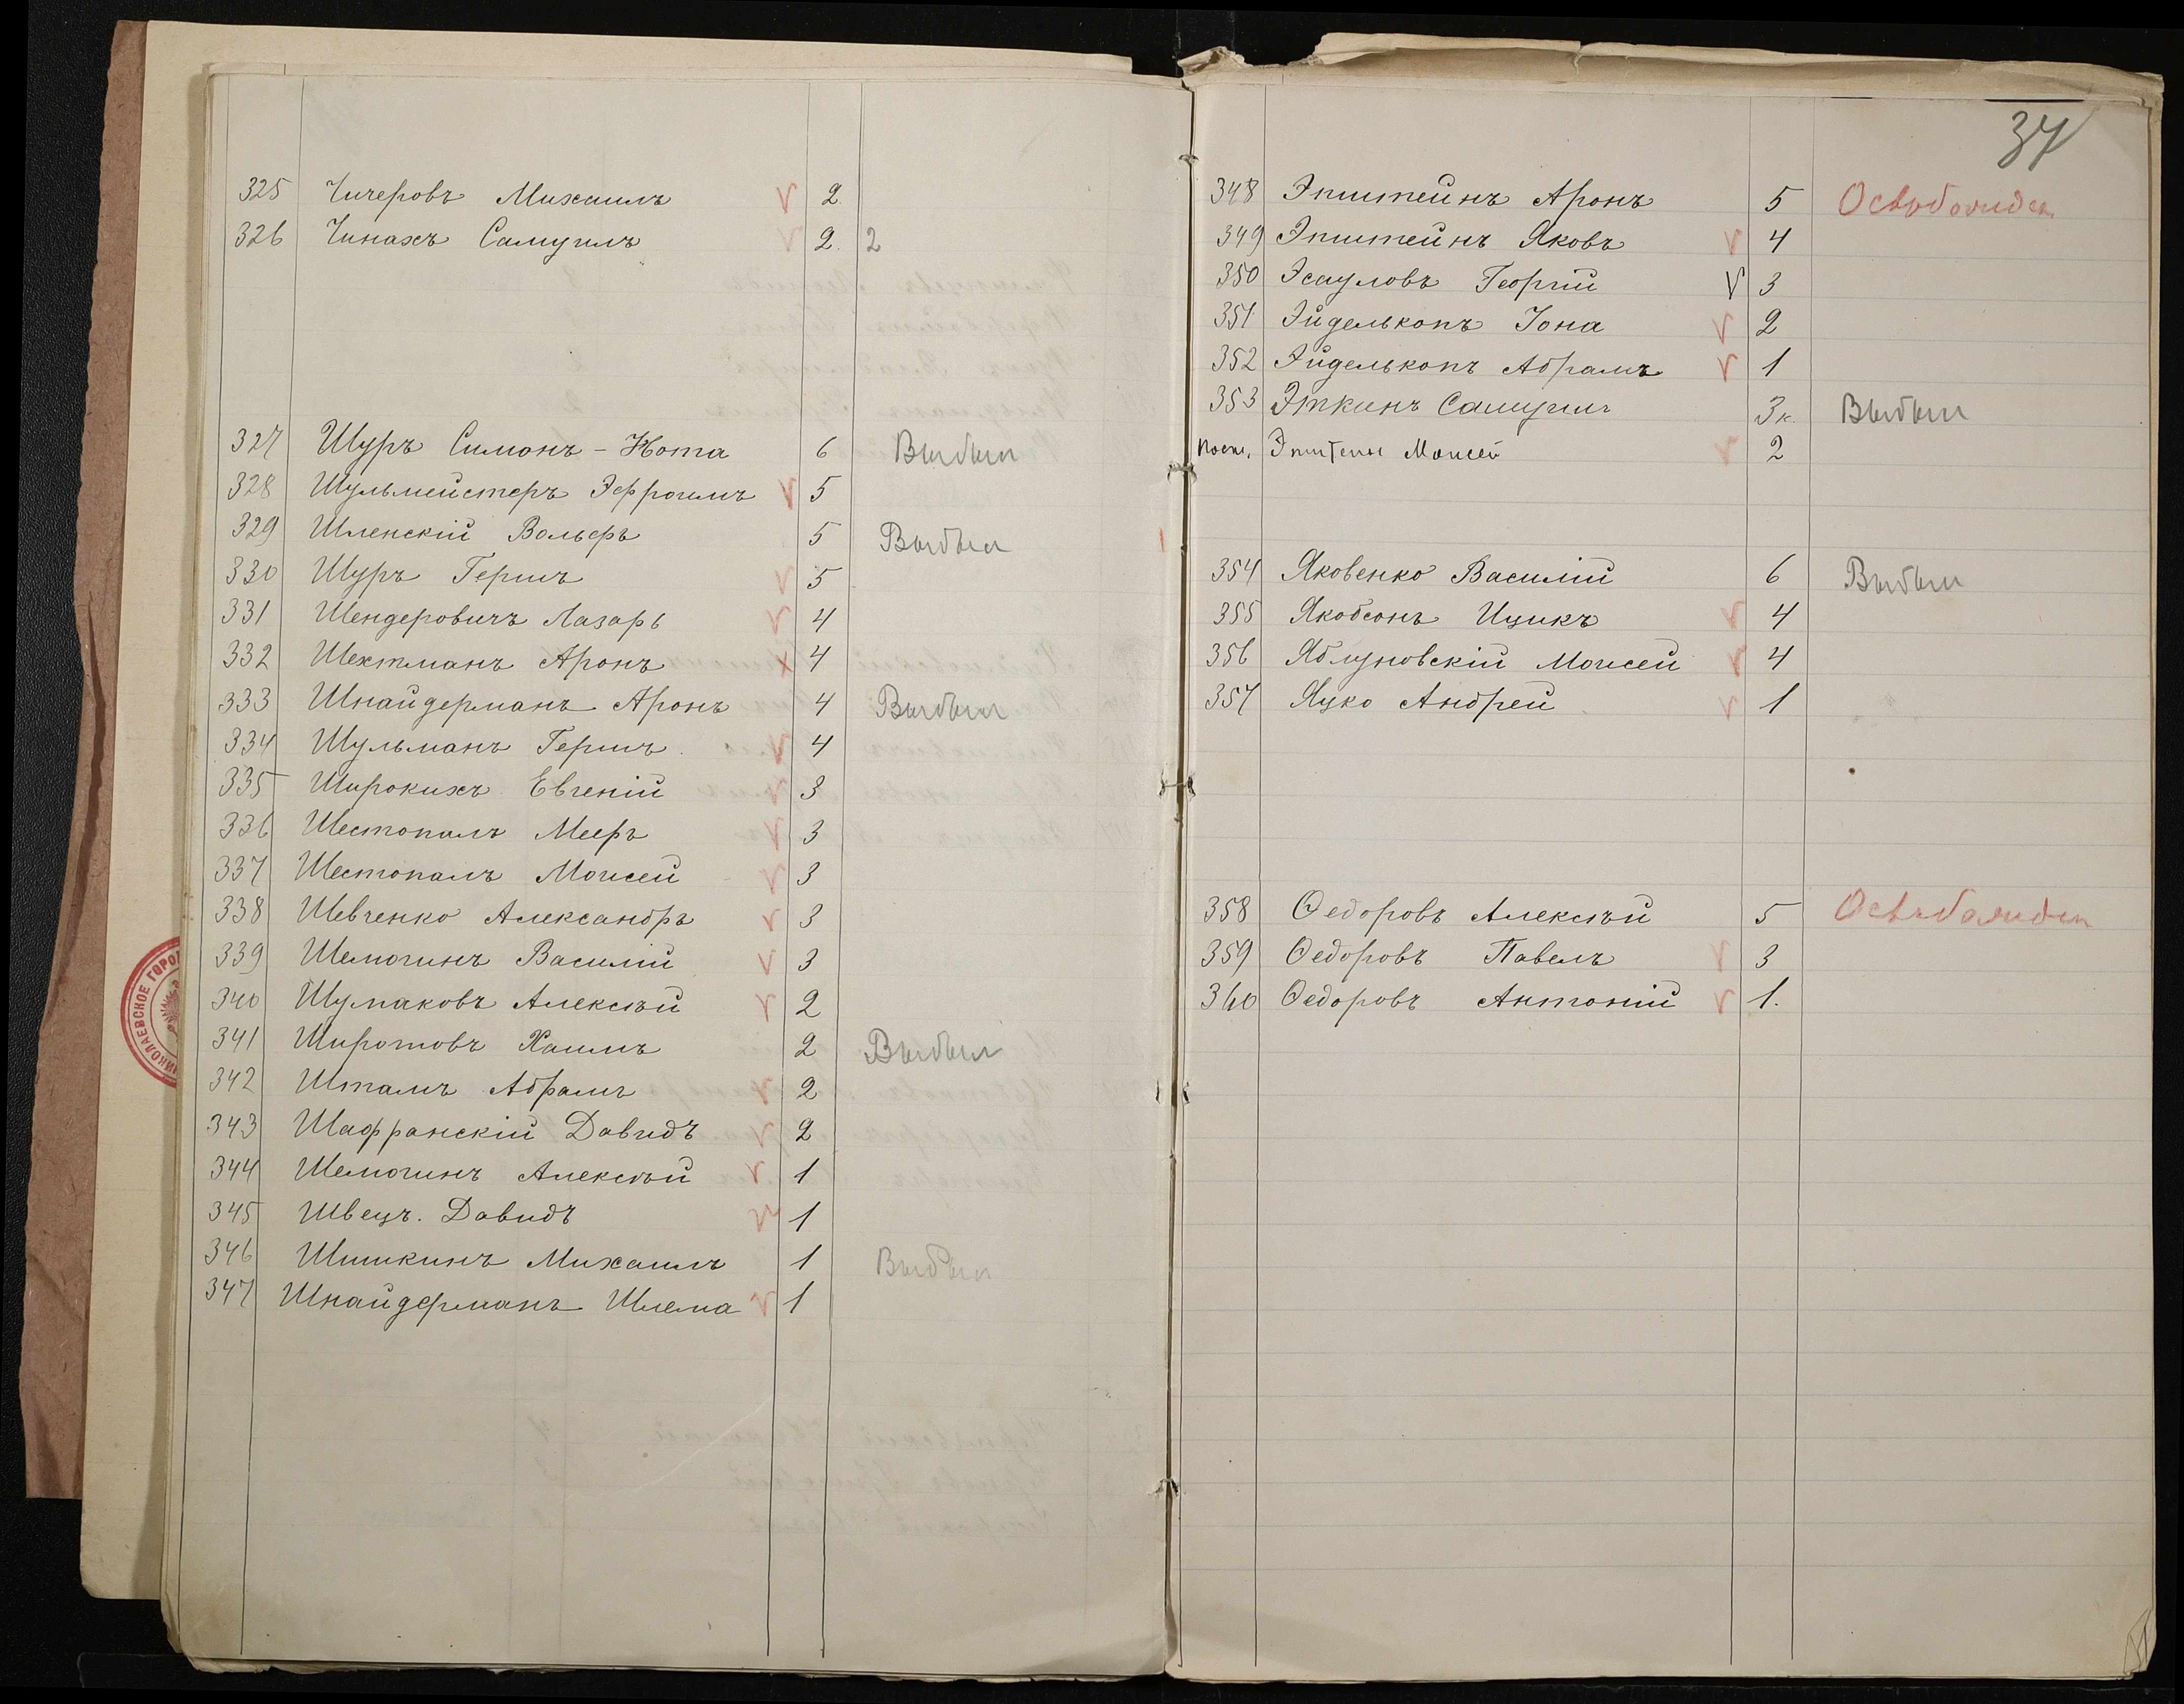 325 Чичеровъ Михаилъ V 2.
326 Чинахъ Самуилъ V 2. 2
327 Шуръ Симонъ - Нота 6 Выбыл
328 Шульмейстеръ Эфроимъ V 5
329 Шленскій Вольфъ 5 Выбыл
330 Шуръ Гершъ V 5
331 Шендеровичъ Лазарь V 4
332 Шехтманъ Аронъ х 4
333 Шнайдерманъ Аронъ 4 Выбыл
334 Шульманъ Гершъ V 4
335 Широкихъ Евгеній V 3
336 Шестопалъ Мееръ V 3
337 Шестопалъ Моисей V 3
338 Шевченко Александръ V 3
339 Шемогинъ Василій V 3
340 Шумаковъ Алексѣй V 2
341 Широтовъ Хаимъ 2 Выбыл
342 Шталь Абрамъ V 2
343 Шафранскій Давидъ V 2
344 Шемогинъ Алексѣй V 1
345 Швецъ. Давидъ V 1
346 Шишкинъ Михаилъ 1 Выбыл
347 Шнайдерманъ Шлема V 1
НИКОЛАЕВСКОЕ ГОРО
37
348 Эпштейнъ Аронъ 5 Освобожден
349 Эпштейнъ Яковъ V 4
350 Эсауловъ Георгій V 3
351 Эйделькопъ Іона V 2
352 Эйделькопъ Абрамъ V 1
353 Эткинъ Самуилъ 3к. Выбыл
Эпштейн Моисей V 2
354 Яковенко Василій 6 Выбыл
355 Якобсонъ Ицикъ V 4
356 Яблуновскій Моисей V 4
357 Яцко Андрей V 1
358 Ѳедоровъ Алексѣй 5 Освобожден
359 Ѳедоровъ Павелъ V 3
360 Ѳедоровъ Антоній V 1.